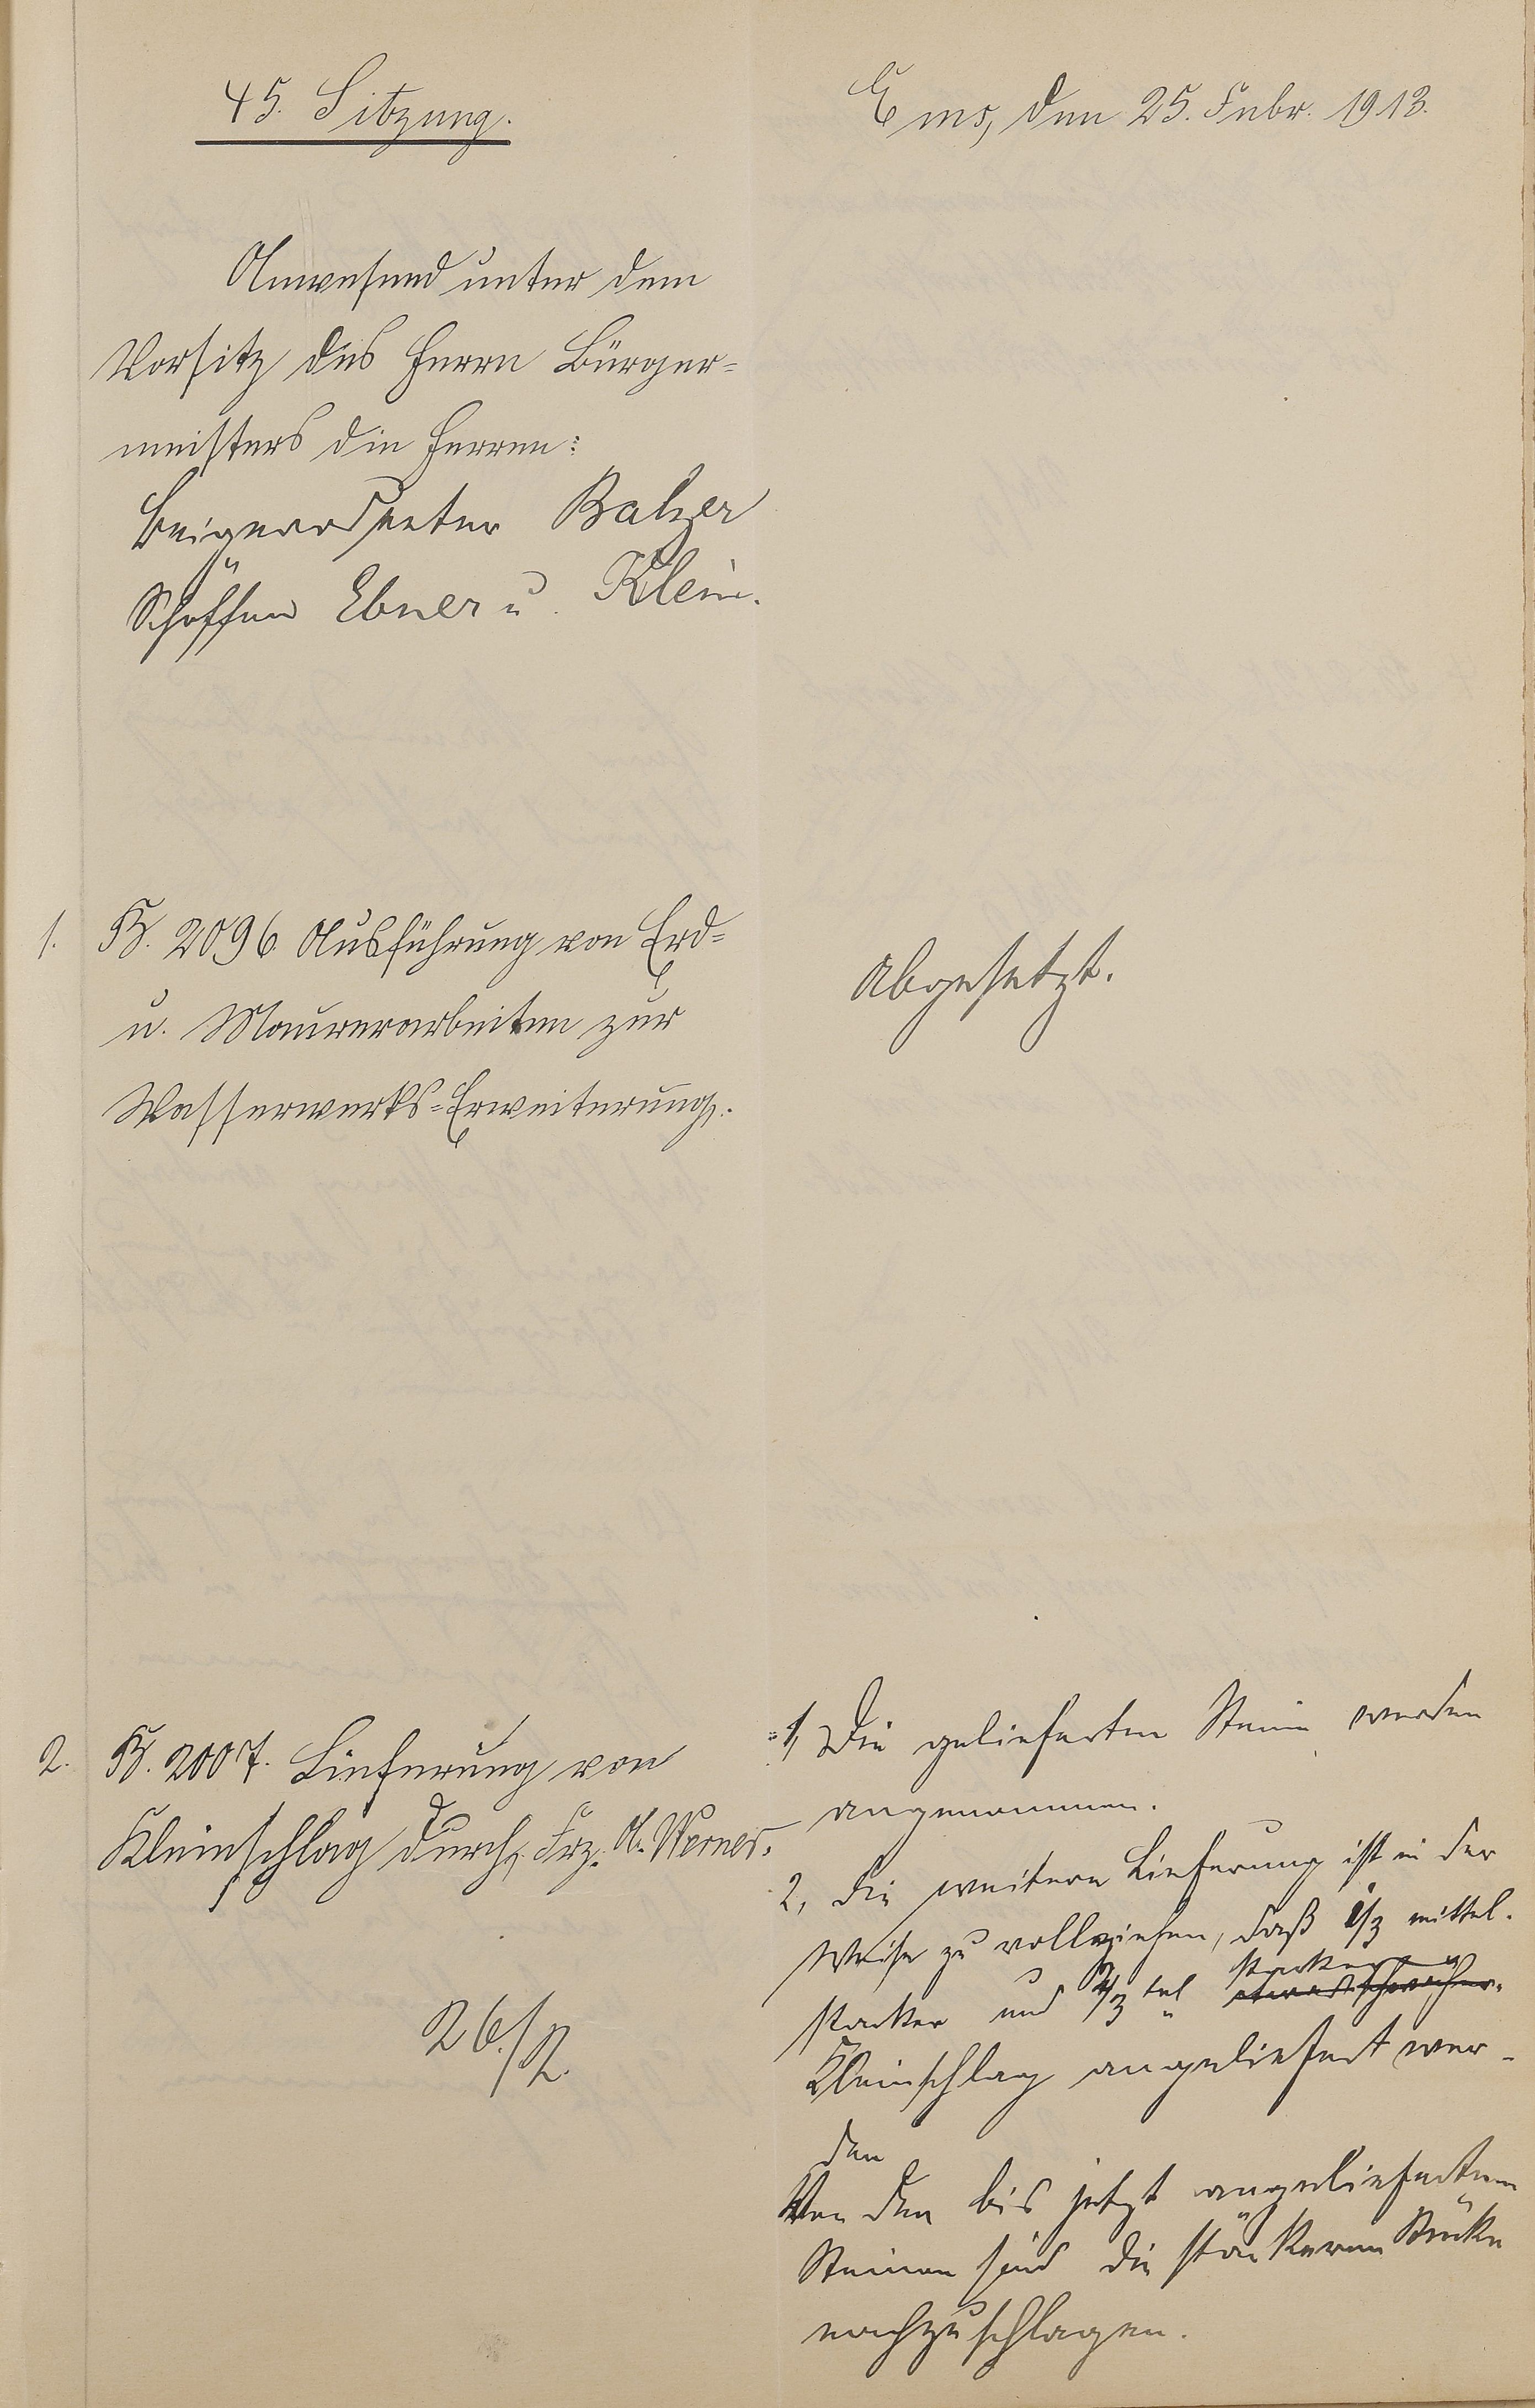 45. Sitzung.
Ems, den 25. Febr. 1913.
Anwesend unter dem
Vorsitz des Herrn Bürger=
meisters die Herren:
Beigeordneter Balzer
Schöffen Ebner u. Klein.
1. K. 2096 Ausführung von Erd=
u. Maurerarbeiten zur
Wasserwerks=Erweiterung.
Abgesetzt.
2. K. 2007. Lieferung von
Kleinschlag durch Frz. A. Werner.
26./2.
1, Die gelieferten Steine werden
angenommen.
2, die weitere Lieferung ist in der
Weise zu vollziehen, daß 1/3 mittel.
starker und 2/3 tel starker
etwas schwacher
Kleinschlag angeliefert wer-
den
Von den bis jetzt angelieferten
Steinen sind die stärkeren Stücke
nachzuschlagen.